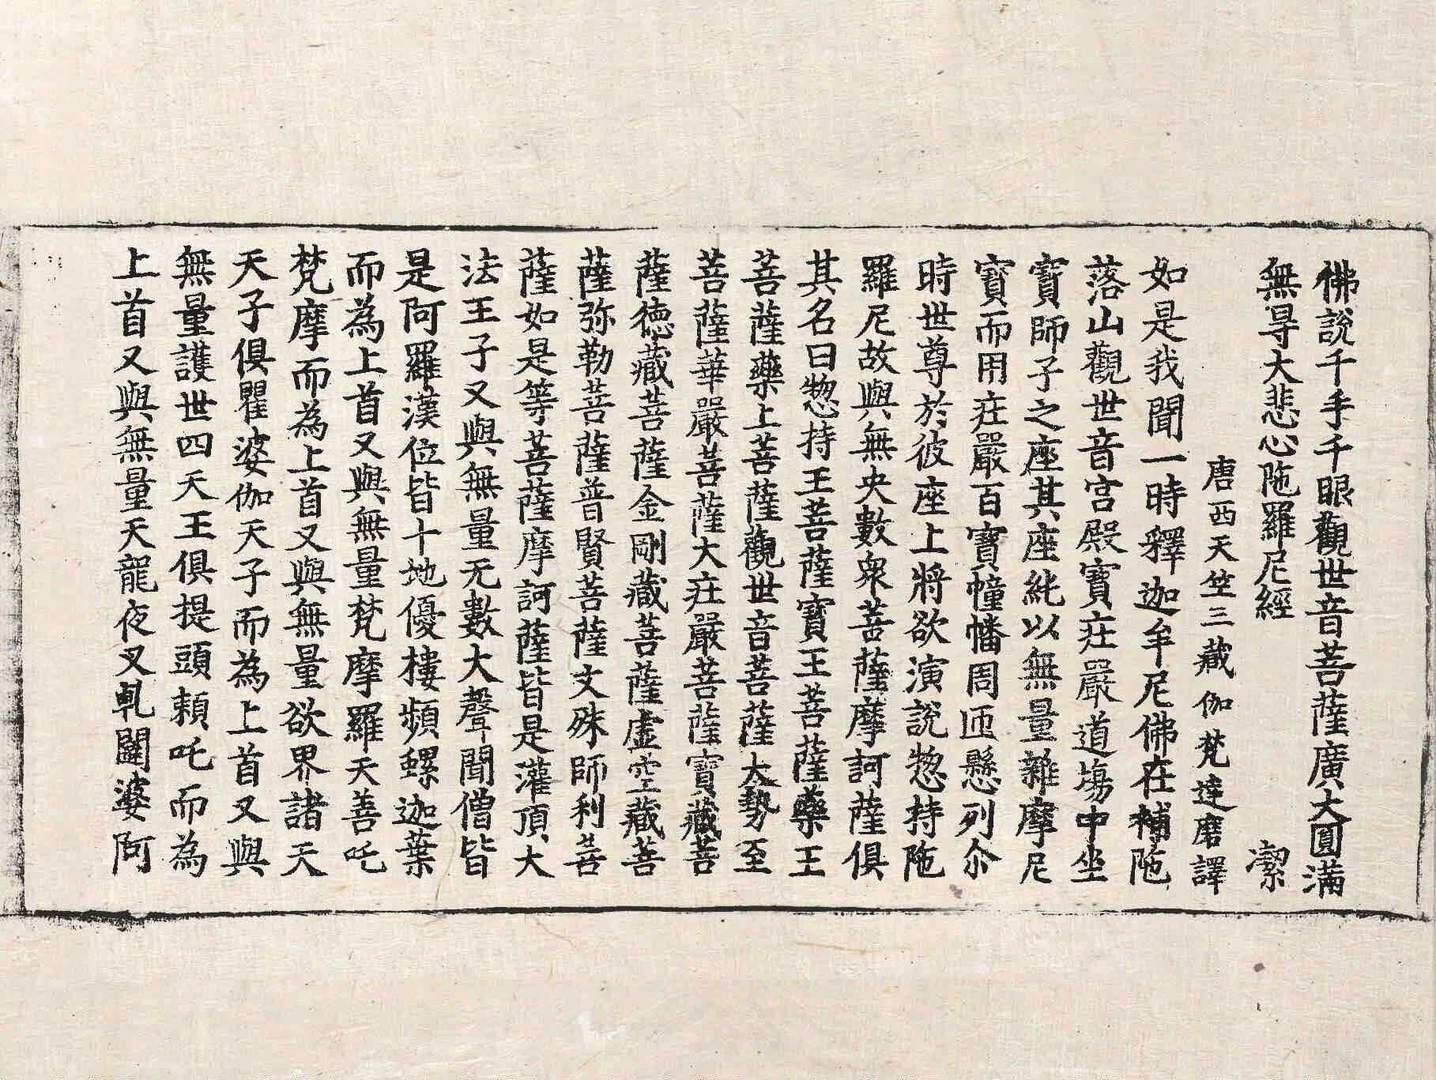 佛說千手千眼觀世音菩薩廣大圓滿
無㝵大悲心陁羅尼經 潔
唐西天竺三藏伽梵達磨譯
如是我聞一時釋迦牟尼佛在補陁
落山觀世音宮殿寶庄嚴道塲中坐
寶師子之座其座純以無量雜摩尼
寶而用庄嚴百寶幢幡周匝懸列尒
時世尊於彼座上將欲演說惣持陁
羅尼故與無央數衆菩薩摩訶薩俱
其名曰惣持王菩薩寶王菩薩藥王
菩薩藥上菩薩觀世音菩薩大勢至
菩薩華嚴菩薩大庄嚴菩薩寶藏菩
薩德藏菩薩金剛藏菩薩虛空藏菩
薩弥勒菩薩普賢菩薩文殊師利菩
薩如是等菩薩摩訶薩皆是灌頂大
法王子又與無量无數大聲聞僧皆
是阿羅漢位皆十地優樓頻螺迦葉
而為上首又與無量梵摩羅天善吒
梵摩而為上首又與無量欲界諸天
天子俱瞿婆伽天子而為上首又與
無量護世四天王俱提頭賴吒而為
上首又與無量天龍夜叉軋闥婆阿